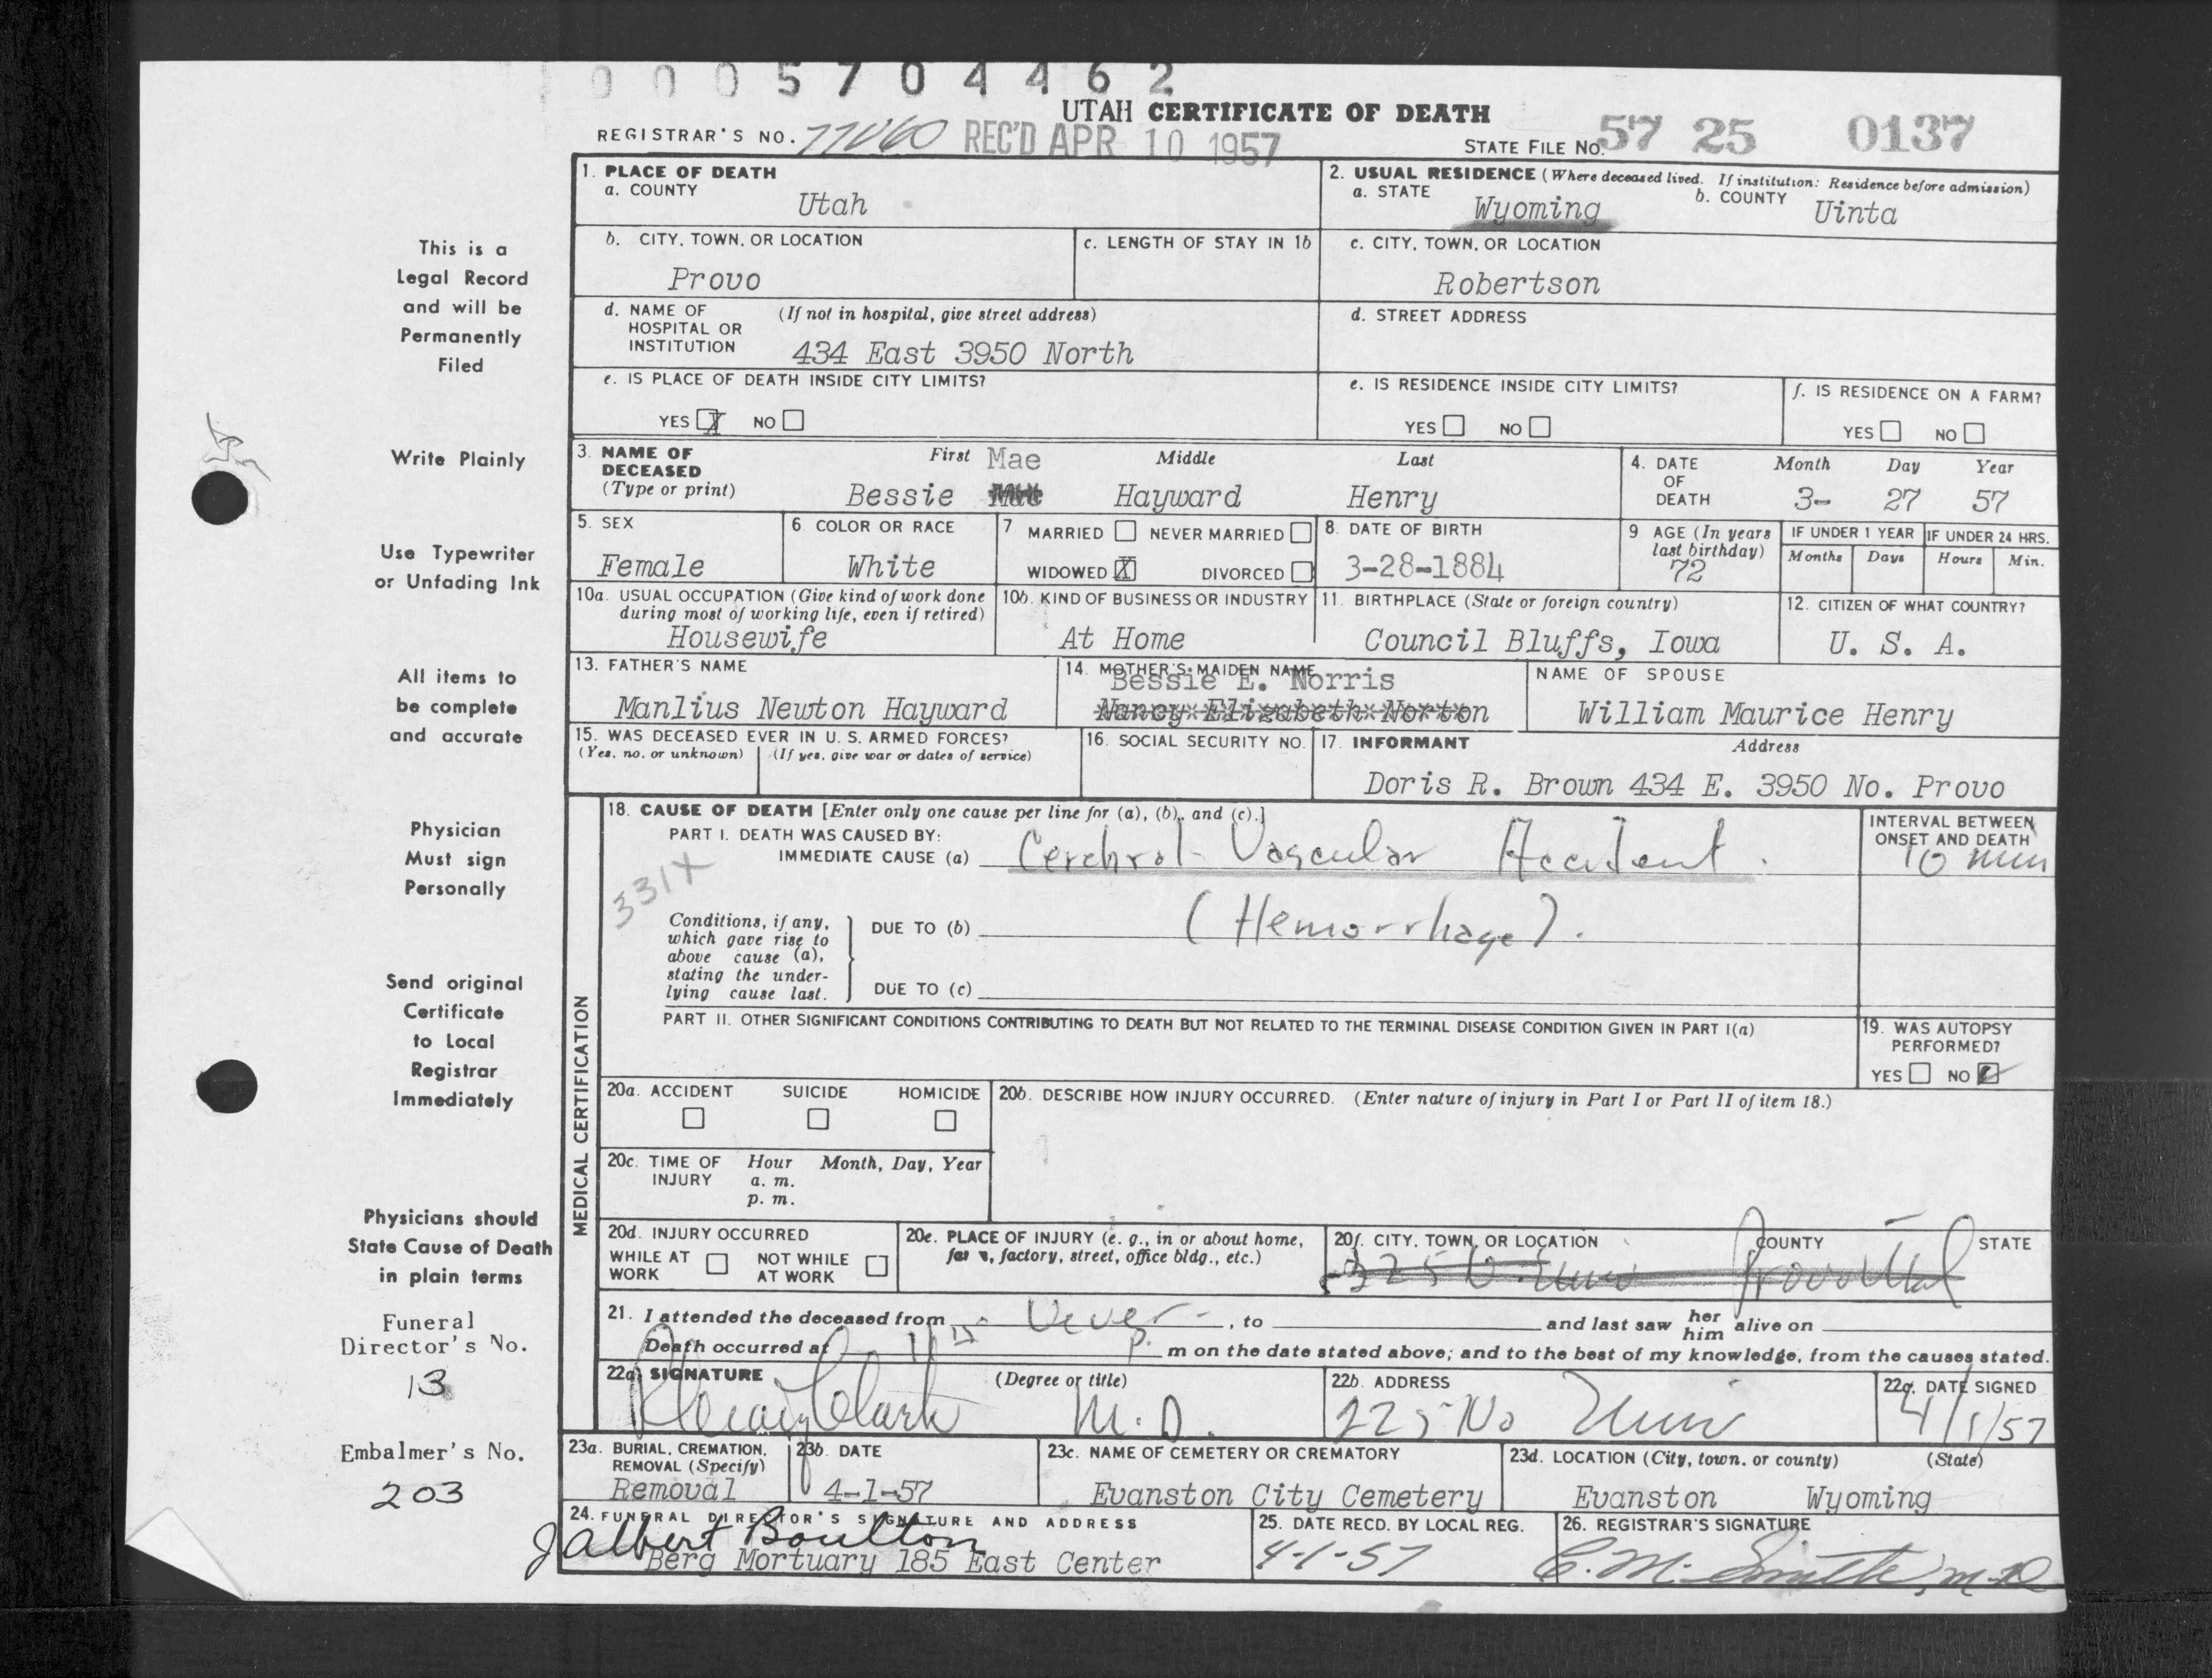 0005704462
UTAH CERTIFICATE OF DEATH
REGISTRAR'S NO. REC'D APR 10 1957 STATE FILE NO. 57 25 0137
This is a
Legal Record
and will be
Permanently
Filed
Write Plainly
Use Typewriter
or Unfading Ink
All items to
be complete
and accurate
Physician
Must sign
Personally
Send original
Certificate
to Local
Registrar
Immediately
Physicians should
State Cause of Death
in plain terms
Funeral
Director's No.
13
Embalmer's No.
203
1. PLACE OF DEATH
a. COUNTY
Utah
2. USUAL RESIDENCE (Where deceased lived. If institution: Residence before admission)
a. STATE Wyoming b. COUNTY Uinta
b. CITY, TOWN, OR LOCATION
Provo
c. LENGTH OF STAY IN 1b
c. CITY, TOWN, OR LOCATION
Robertson
d. NAME OF HOSPITAL OR INSTITUTION (If not in hospital, give street address)
434 East 3950 North
d. STREET ADDRESS
e. IS PLACE OF DEATH INSIDE CITY LIMITS?
YES X NO
e. IS RESIDENCE INSIDE CITY LIMITS?
YES NO
f. IS RESIDENCE ON A FARM?
YES NO
3. NAME OF DECEASED (Type or print) First Mae Middle Last
Bessie Hayward Henry
4. DATE OF DEATH Month Day Year
3- 27 57
5. SEX
Female
6. COLOR OR RACE
White
7 MARRIED NEVER MARRIED
WIDOWED X DIVORCED
8. DATE OF BIRTH
3-28-1884
9 AGE (In years last birthday)
72
IF UNDER 1 YEAR IF UNDER 24 HRS.
Months Days Hours Min.
10a. USUAL OCCUPATION (Give kind of work done during most of working life, even if retired)
Housewife
10b. KIND OF BUSINESS OR INDUSTRY
At Home
11. BIRTHPLACE (State or foreign country)
Council Bluffs, Iowa
12. CITIZEN OF WHAT COUNTRY?
U. S. A.
13. FATHER'S NAME
Manlius Newton Hayward
14. MOTHER'S MAIDEN NAME
Bessie E. Norris
Nancy Elizabeth Norton
NAME OF SPOUSE
William Maurice Henry
15. WAS DECEASED EVER IN U. S. ARMED FORCES?
(Yes, no, or unknown) (If yes, give war or dates of service)
16. SOCIAL SECURITY NO.
17. INFORMANT Address
Doris R. Brown 434 E. 3950 No. Provo
MEDICAL CERTIFICATION
18. CAUSE OF DEATH [Enter only one cause per line for (a), (b), and (c).]
PART I. DEATH WAS CAUSED BY:
IMMEDIATE CAUSE (a) Cerebral Vascular Accident.
INTERVAL BETWEEN ONSET AND DEATH
10 min
331X
Conditions, if any, which gave rise to above cause (a), stating the underlying cause last.
DUE TO (b) (Hemorrhage).
DUE TO (c)
PART II. OTHER SIGNIFICANT CONDITIONS CONTRIBUTING TO DEATH BUT NOT RELATED TO THE TERMINAL DISEASE CONDITION GIVEN IN PART I(a)
19. WAS AUTOPSY PERFORMED?
YES NO
20a. ACCIDENT SUICIDE HOMICIDE
20b. DESCRIBE HOW INJURY OCCURRED. (Enter nature of injury in Part I or Part II of item 18.)
20c. TIME OF INJURY Hour Month, Day, Year
a. m.
p. m.
20d. INJURY OCCURRED
WHILE AT WORK NOT WHILE AT WORK
20e. PLACE OF INJURY (e. g., in or about home, farm, factory, street, office bldg., etc.)
20f. CITY, TOWN, OR LOCATION COUNTY STATE
21. I attended the deceased from Never, to and last saw her him alive on
Death occurred at 11 15 P. m on the date stated above; and to the best of my knowledge, from the causes stated.
22a. SIGNATURE (Degree or title)
Clark M.D.
22b. ADDRESS
225 No
22c. DATE SIGNED
4/1/57
23a. BURIAL, CREMATION, REMOVAL (Specify)
Removal
23b. DATE
4-1-57
23c. NAME OF CEMETERY OR CREMATORY
Evanston City Cemetery
23d. LOCATION (City, town, or county) (State)
Evanston Wyoming
24. FUNERAL DIRECTOR'S SIGNATURE AND ADDRESS
J Albert Boulton
Berg Mortuary 185 East Center
25. DATE RECD. BY LOCAL REG.
4-1-57
26. REGISTRAR'S SIGNATURE
C. M. Smith, M.D